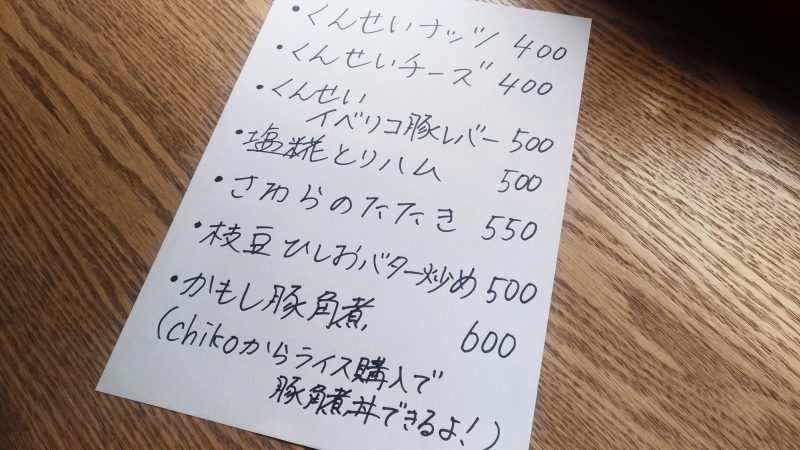 ・くんせいナッツ 400
・くんせいチーズ 400
・くんせい
イベリコ豚レバー 500
・塩糀とりハム 500
・さわらのたたき 550
・枝豆ひしおバター炒め 500
・かもし豚角煮 600
(chikoからライス購入で
豚角煮丼できるよ!)